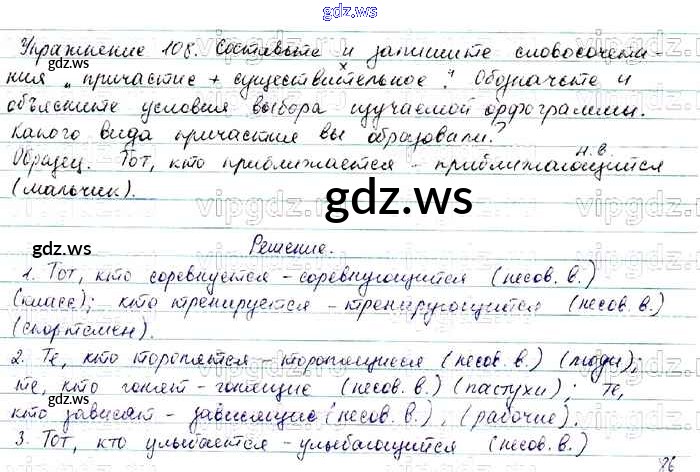 gdz.ws
Упражнение 108. Составьте и запишите словосочета-
ния „причастие + существительное". Обозначьте и
объясните условия выбора изучаемой орфограммы.
Какого вида причастия вы образовали?
н.в.
Образец. Тот, кто приближается - приближающийся
(мальчик).
gdz.ws
gdz.ws
Решение.
1. Тот, кто соревнуется - соревнующийся (несов. в.)
(класс); кто тренируется - тренирующийся (несов. в.)
(спортсмен).
2. Те, кто торопятся - торопящиеся (несов. в.) (люди);
те, кто гонят - гонящие (несов. в.) (пастухи); те,
кто зависят - зависящие (несов. в.), (рабочие).
3. Тот, кто улыбается - улыбающийся (несов. в.)
86
gdz.ws